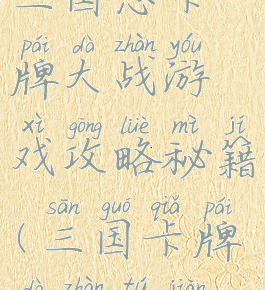 三国志卡
pái dà zhàn yóu
牌大战游
xì gōng lüè mì jí
戏攻略秘籍
sān guó qiǎ pái
(三国卡牌
dà zhàn tú jiàn